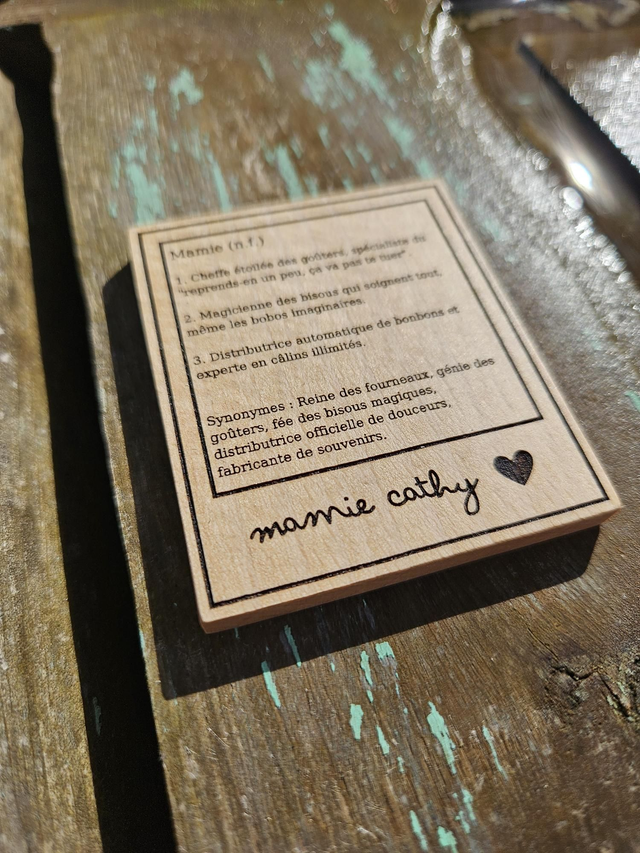 Mamie (n.f.)
1. Cheffe étoilée des goûters, spécialiste du
"reprends-en un peu, ça va pas te tuer".
2. Magicienne des bisous qui soignent tout,
même les bobos imaginaires.
3. Distributrice automatique de bonbons et
experte en câlins illimités.
Synonymes : Reine des fourneaux, génie des
goûters, fée des bisous magiques,
distributrice officielle de douceurs,
fabricante de souvenirs.
mamie cathy